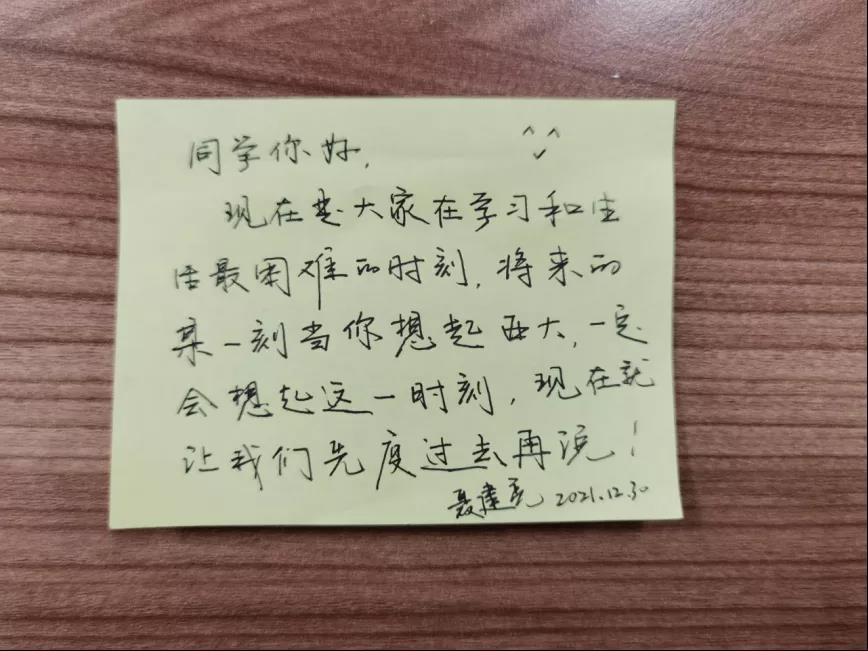 同学你好,
现在是大家在学习和生
活最困难的时刻,将来的
某一刻当你想起西大,一定
会想起这一时刻,现在就
让我们先度过去再说!
聂建亮 2021.12.30